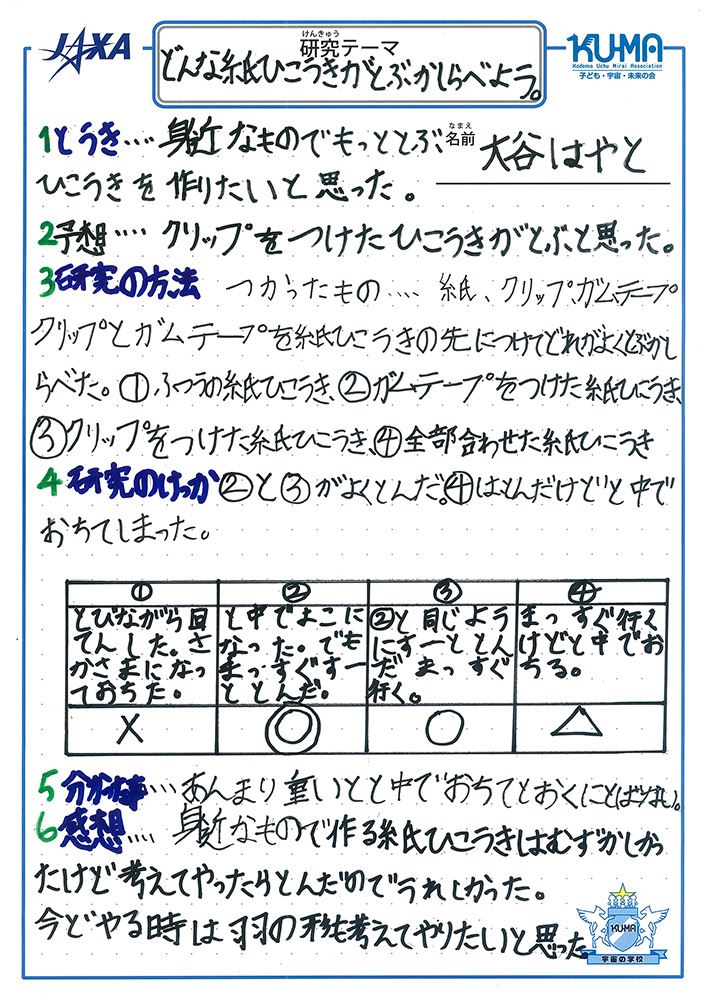 JAXA
けんきゅう
研究テーマ
どんな紙ひこうきがとぶかしらべよう。
KU-MA
Kodomo Uchu Mirai Association
子ども・宇宙・未来の会
1 どうき…. 身近なものでもっととぶ
なまえ
名前 大谷はやと
ひこうきを作りたいと思った。
2 予想…. クリップをつけたひこうきがとぶと思った。
3 研究の方法 つかったもの…. 紙、クリップ、ガムテープ
クリップとガムテープを紙ひこうきの先につけてどれがよくとぶかし
らべた。①ふつうの紙ひこうき、②ガムテープをつけた紙ひこうき、
③クリップをつけた紙ひこうき、④全部合わせた紙ひこうき
4 研究のけっか ②と③がよくとんだ。④はとんだけどと中で
おちてしまった。
① ② ③ ④
とびながら回
てんした。さ
かさまになっ
ておちた。
と中でよこに
なった。でも
まっすぐすー
ととんだ。
②と同じよう
にすーととん
だまっすぐ
行く。
まっすぐ行く
けどと中でお
ちる。
× ◎ ○ △
5 分かった事…. あんまり重いとと中でおちてとおくにとばない。
6 感想…. 身近なもので作る紙ひこうきはむずかしかっ
たけど考えてやったらとんだのでうれしかった。
今どやる時は羽の形も考えてやりたいと思った。
KU-MA
宇宙の学校